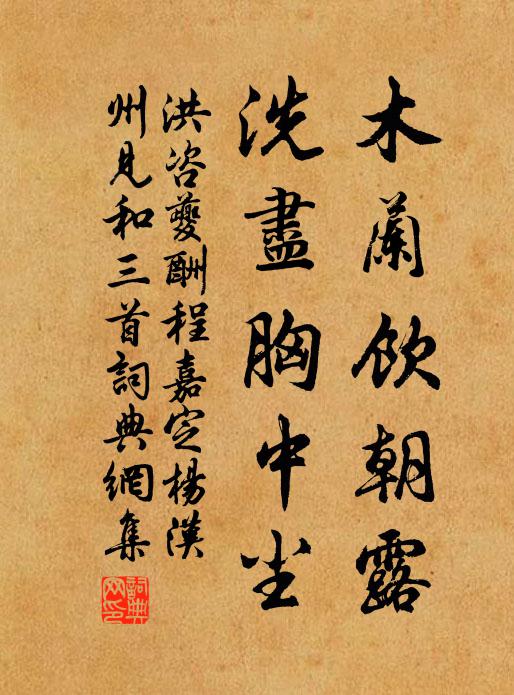 木蘭飲朝露
洗盡胸中尘
洪咨夔酬程嘉定楊漢
州見和三首詞典網集
詞典
网印